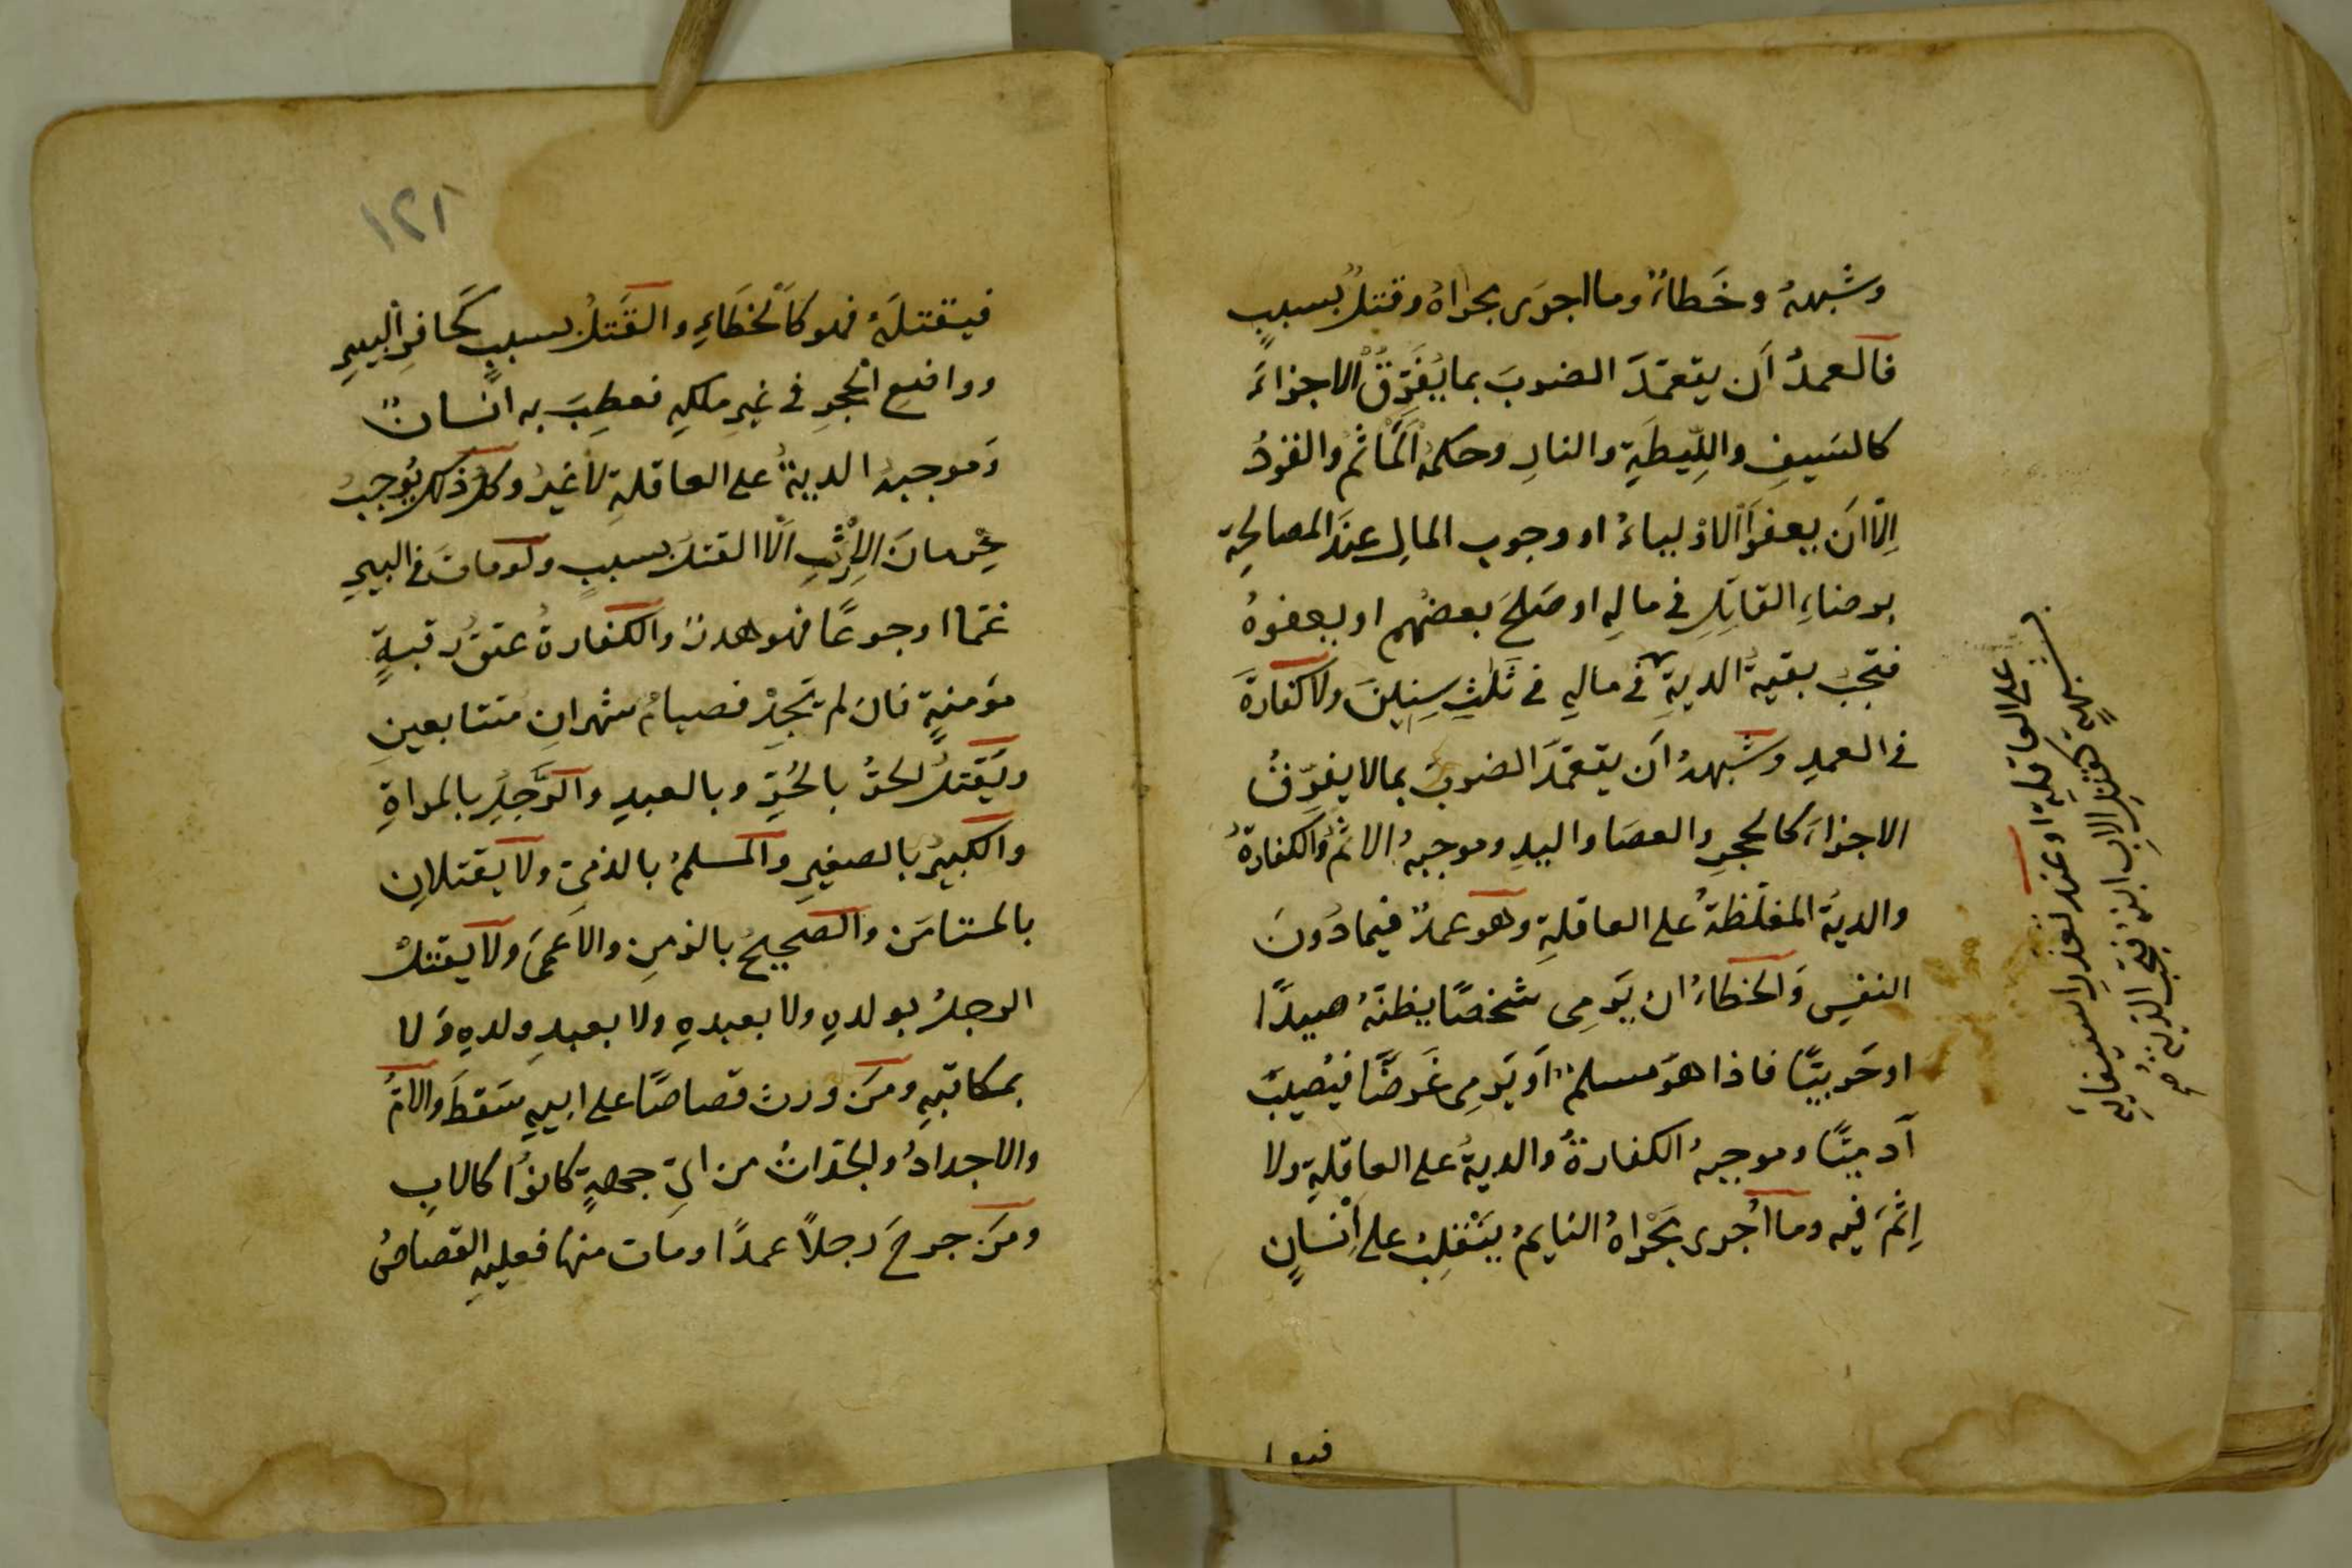 وشبههُ وخَطاءٌ وما اجرَى مجراهُ وقتلٌ بسببٍ
فالعمدُ اَن يتعمّدَ الضربَ بما يُفَرِّقُ الاجزاءَ
كالسَيفِ واللِّيطَةِ والنارِ وحكمهُ المَأثمُ والقودُ
اِلّا اَن يعفوَ الاَوْلياءُ او وجوب المالِ عندَ المصالحةِ
برضاءِ القاتِلِ في مالِهِ او صَلحَ بعضُهم او بعفوهُ
فتجبُ بقيةُ الديةِ في مالهِ في ثَلٰثِ سِنينَ ولا كفارةَ
في العمدِ وشبههُ اَن يتعمّدَ الضربَ بما لا يفرّقُ
الاجزاءَ كالحجرِ والعصَا واليدِ وموجبهُ الاثمُ والكفارةُ
والديةُ المغلّظةُ على العاقلةِ وهو عمدٌ فيما دُونَ
النفسِ وَالخطاءُ ان يَرمِى شخصًا يظنّهُ صيدًا
او حَربيًّا فاذا هوَ مسلمٌ اَو يَرمِى غَرضًا فيُصيبَ
آدميًّا وموجبهُ الكفارةُ والديةُ على العاقلةِ ولا
اِثمَ فيه وما اُجرى مَجْراهُ النايمُ يَنْقلِبُ على اِنْسانٍ
على العاقلةِ او عند تعذر استيفايهِ
لشبهةٍ كقتلِ الاب ابنهُ فتجب الديةُ صح
فيقتلَهُ
١٢١
فيقتلَهُ فهو كاَلخطَاءِ والقَتلُ بسببٍ كَحافرِ البيرِ
وواضعِ الحجرِ في غيرِ ملكهِ فعطِبَ به انسانٌ
وَموجبهُ الديةُ على العاقلةِ لا غيرُ وكلُّ ذلك يُوجبُ
حِرمانَ الاِرْثِ اِلّا القتلَ بسببٍ ولو ماتَ في البيرِ
غمّا او جوعًا فهو هدرٌ والكفارةُ عتقُ رقبةٍ
مؤمنةٍ فانَ لم يَجِدْ فصيامُ شهرانِ متتابعينِ
ويُقتلُ الحرُّ بالحُرِّ وبالعبدِ والرَّجلُ بالمراةِ
والكبيرُ بالصغيرِ والمسلمُ بالذميّ ولا يقتلانِ
بالمستامَن والصحيحُ بالزمِنِ والاَعمَى ولا يقتلُ
الرجلُ بولدهِ ولا بعبدهِ ولا بعبدِ ولدهِ وَلا
بمكاتبهِ ومَن ورث قصاصًا على ابيهِ سَقطَ والامُّ
والاجدادُ والجدّاتُ من ايّ جهةٍ كانوُا كالابِ
ومَن جرحَ رجلاً عمدًا ومَات منها فعليهِ القصاصُ